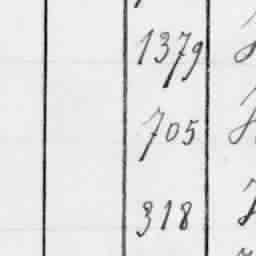 1379
705
318